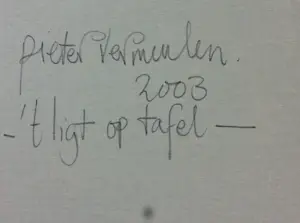 pieter vermeulen.
2003
- 't ligt op tafel —